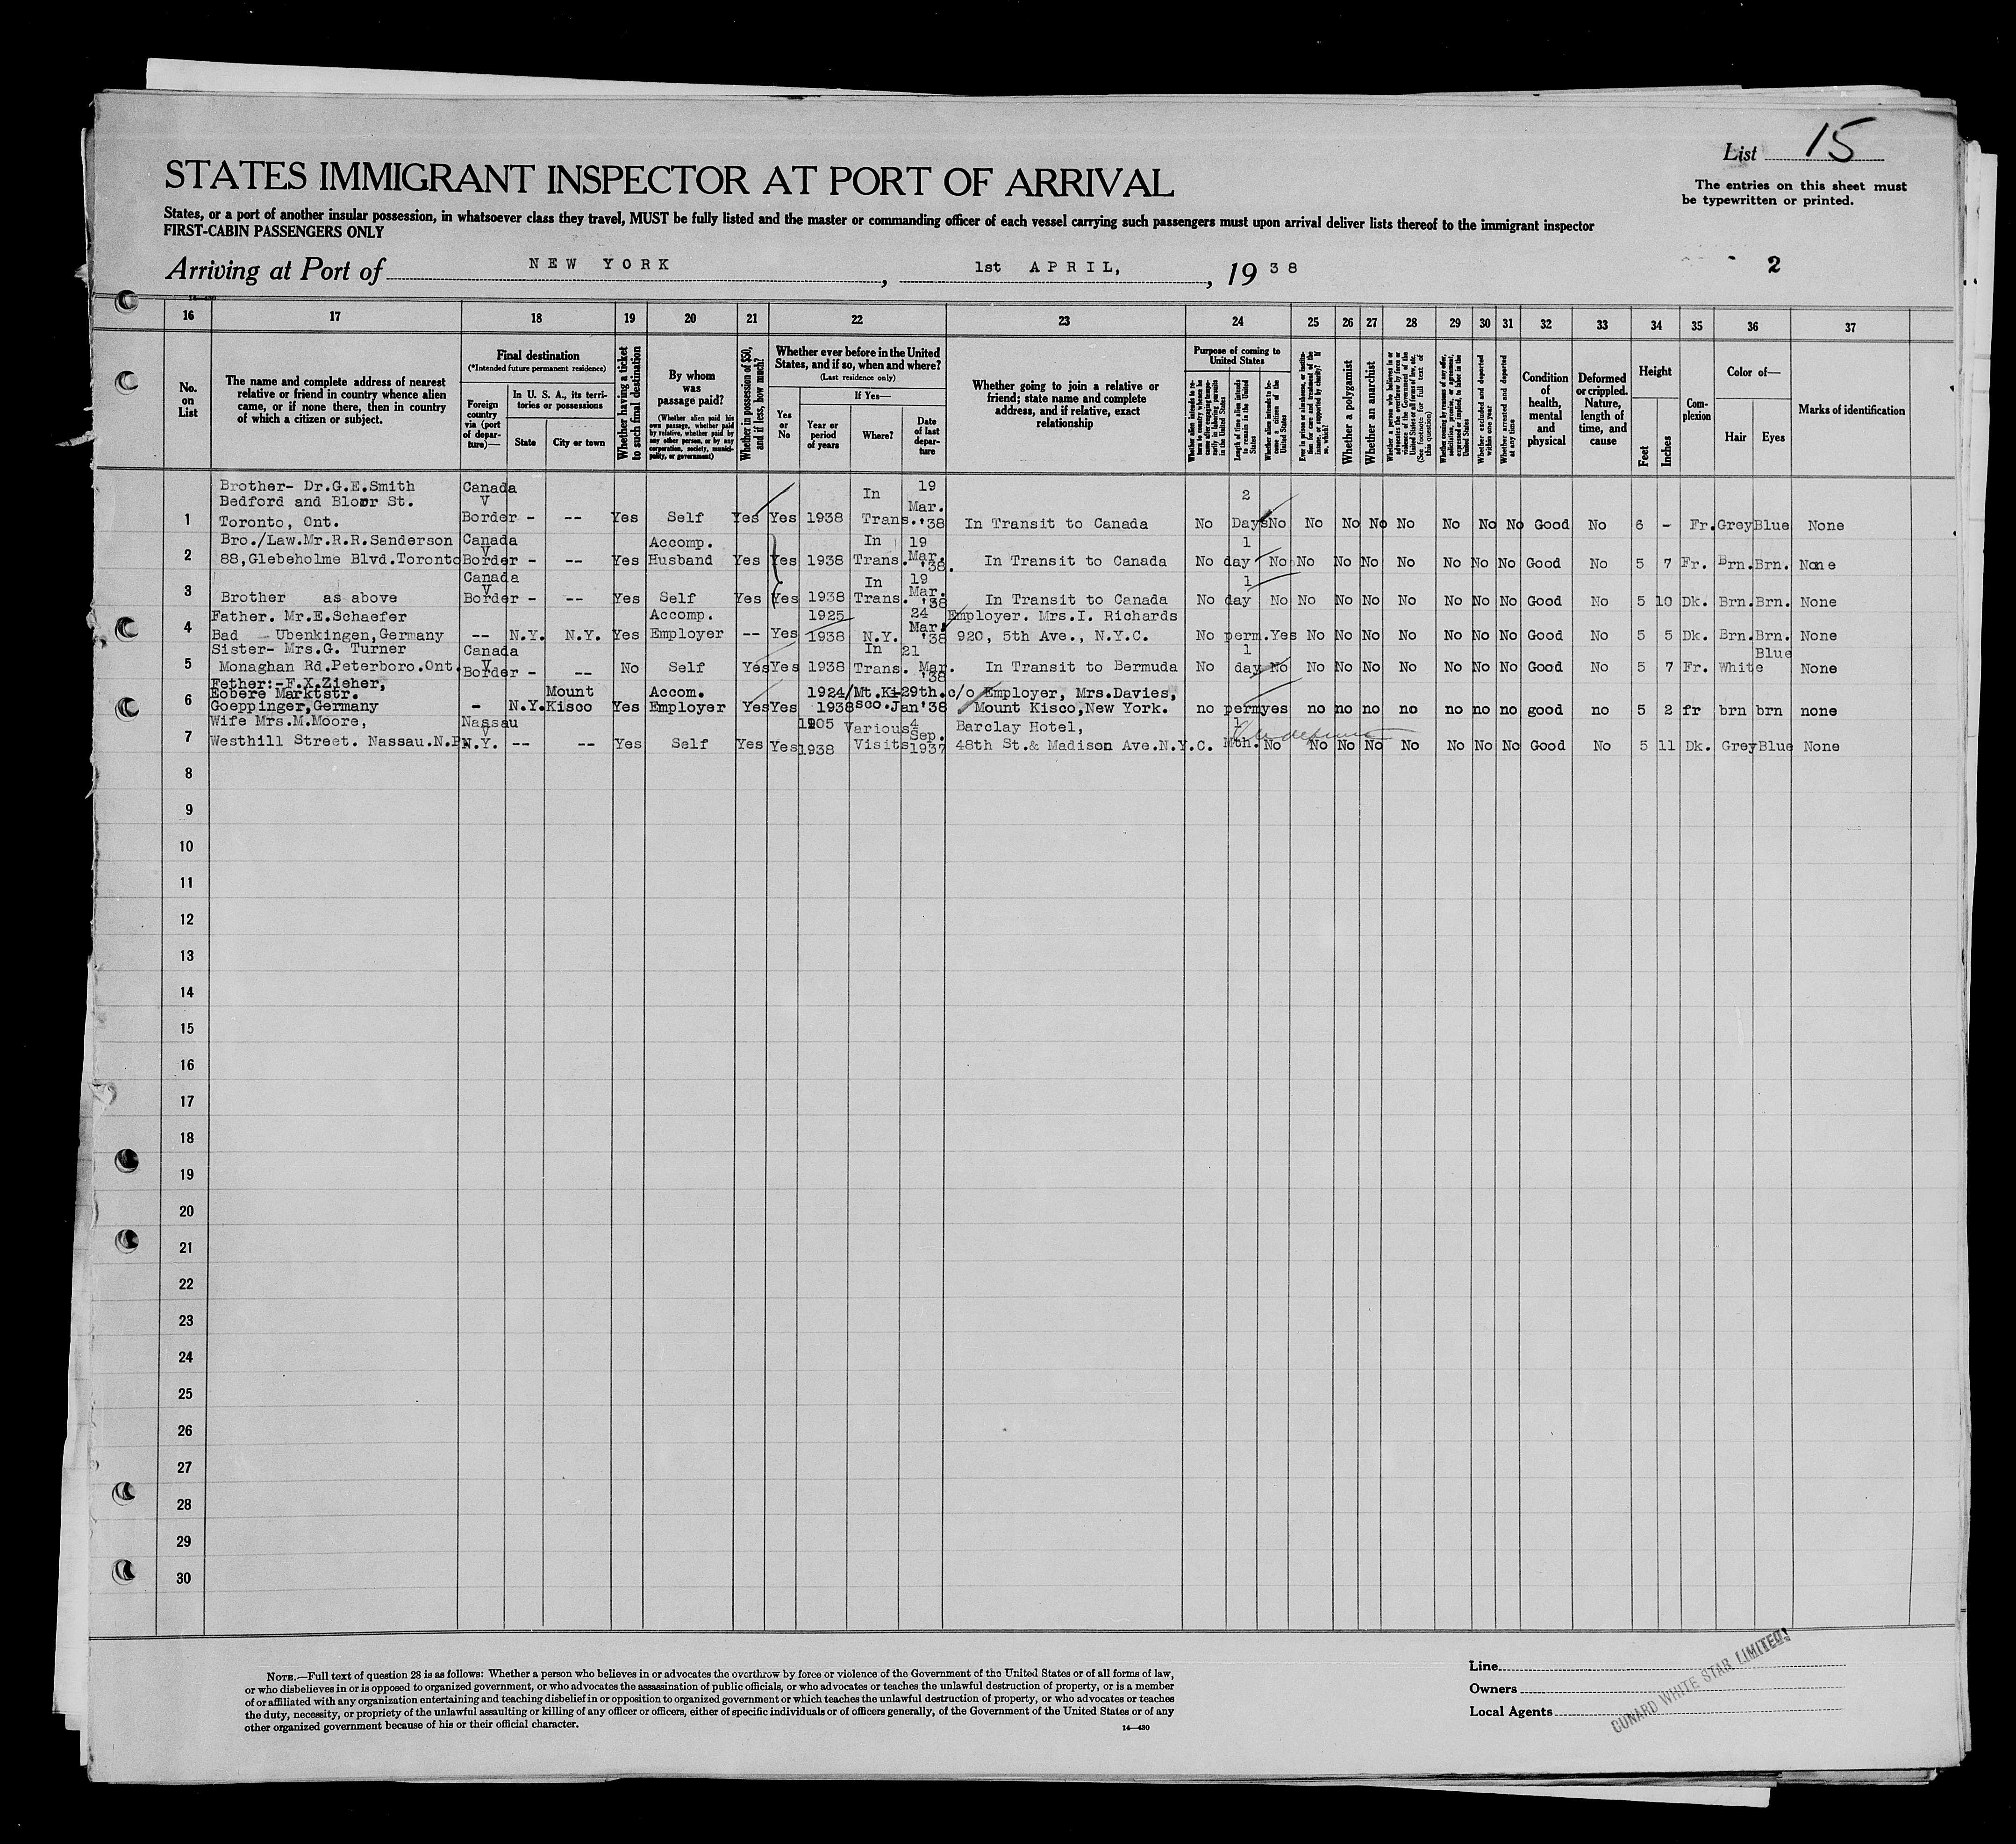 List 15
STATES IMMIGRANT INSPECTOR AT PORT OF ARRIVAL
The entries on this sheet must
be typewritten or printed.
States, or a port of another insular possession, in whatsoever class they travel, MUST be fully listed and the master or commanding officer of each vessel carrying such passengers must upon arrival deliver lists thereof to the immigrant inspector
FIRST-CABIN PASSENGERS ONLY
Arriving at Port of NEW YORK, 1st APRIL, 1938
2
14—430
16 17 18 19 20 21 22 23 24 25 26 27 28 29 30 31 32 33 34 35 36 37
No. on List
The name and complete address of nearest relative or friend in country whence alien came, or if none there, then in country of which a citizen or subject.
Final destination
(*Intended future permanent residence)
Foreign country via (port of departure)—
In U. S. A., its territories or possessions
State
City or town
Whether having a ticket to such final destination
By whom was passage paid?
(Whether alien paid his own passage, whether paid by relative, whether paid by any other person, or by any corporation, society, municipality, or government)
Whether in possession of $50, and if less, how much?
Whether ever before in the United States, and if so, when and where?
(Last residence only)
Yes or No
If Yes—
Year or period of years
Where?
Date of last departure
Whether going to join a relative or friend; state name and complete address, and if relative, exact relationship
Purpose of coming to United States
Whether alien intends to return to country whence he came after engaging temporarily in laboring pursuits in the United States
Length of time alien intends to remain in the United States
Whether alien intends to become a citizen of the United States
Ever in prison or almshouse, or institution for care and treatment of the insane, or supported by charity? If so, which?
Whether a polygamist
Whether an anarchist
Whether a person who believes in or advocates the overthrow by force or violence of the Government of the United States or all forms of law, etc. (See footnote for full text of this question)
Whether coming by reason of any offer, solicitation, promise, or agreement, expressed or implied, to labor in the United States
Whether excluded and deported within one year
Whether arrested and deported at any time
Condition of health, mental and physical
Deformed or crippled. Nature, length of time, and cause
Height
Feet
Inches
Complexion
Color of—
Hair
Eyes
Marks of identification
1 Brother- Dr.G.E.Smith Bedford and Bloor St. Toronto, Ont. Canada V Border - -- Yes Self Yes Yes 1938 In Trans. 19 Mar. '38 In Transit to Canada No 2 Days No No No No No No No No Good No 6 - Fr. Grey Blue None
2 Bro./Law.Mr.R.R.Sanderson 88,Glebeholme Blvd.Toronto Canada V Border - -- Yes Accomp. Husband Yes Yes 1938 In Trans. 19 Mar. '38. In Transit to Canada No 1 day No No No No No No No No Good No 5 7 Fr. Brn. Brn. None
3 Brother as above Canada V Border - -- Yes Self Yes Yes 1938 In Trans. 19 Mar. '38 In Transit to Canada No 1 day No No No No No No No No Good No 5 10 Dk. Brn. Brn. None
4 Father. Mr.E.Schaefer Bad Ubenkingen,Germany -- N.Y. N.Y. Yes Accomp. Employer -- Yes 1925 1938 N.Y. 24 Mar. '38 Employer. Mrs.I. Richards 920, 5th Ave., N.Y.C. No perm. Yes No No No No No No No Good No 5 5 Dk. Brn. Brn. None
5 Sister- Mrs.G. Turner Monaghan Rd.Peterboro.Ont. Canada V Border - -- No Self Yes Yes 1938 In Trans. 21 Mar. '38 In Transit to Bermuda No 1 day No No No No No No No No Good No 5 7 Fr. White Blue None
6 Father:-F.X.Zieher, Eobere Marktstr. Goeppinger,Germany - N.Y. Mount Kisco Yes Accom. Employer Yes Yes 1924/1938 Mt.Kisco. 29th. Jan'38 c/o Employer, Mrs.Davies, Mount Kisco,New York. no perm yes no no no no no no no good no 5 2 fr brn brn none
7 Wife Mrs.M.Moore, Westhill Street. Nassau.N.P. Nassau V N.Y. -- -- Yes Self Yes Yes 1905 1938 Various Visits 4 Sep. 1937 Barclay Hotel, 48th St.& Madison Ave.N.Y.C. 1 Mth. No No No No No No No No Good No 5 11 Dk. Grey Blue None
8
9
10
11
12
13
14
15
16
17
18
19
20
21
22
23
24
25
26
27
28
29
30
NOTE.—Full text of question 28 is as follows: Whether a person who believes in or advocates the overthrow by force or violence of the Government of the United States or of all forms of law,
or who disbelieves in or is opposed to organized government, or who advocates the assassination of public officials, or who advocates or teaches the unlawful destruction of property, or is a member
of or affiliated with any organization entertaining and teaching disbelief in or opposition to organized government or which teaches the unlawful destruction of property, or who advocates or teaches
the duty, necessity, or propriety of the unlawful assaulting or killing of any officer or officers, either of specific individuals or of officers generally, of the Government of the United States or of any
other organized government because of his or their official character.
14—430
Line
Owners
Local Agents
CUNARD WHITE STAR LIMITED.